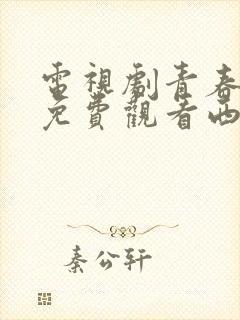 電視劇青春
免費觀看西
秦公轩